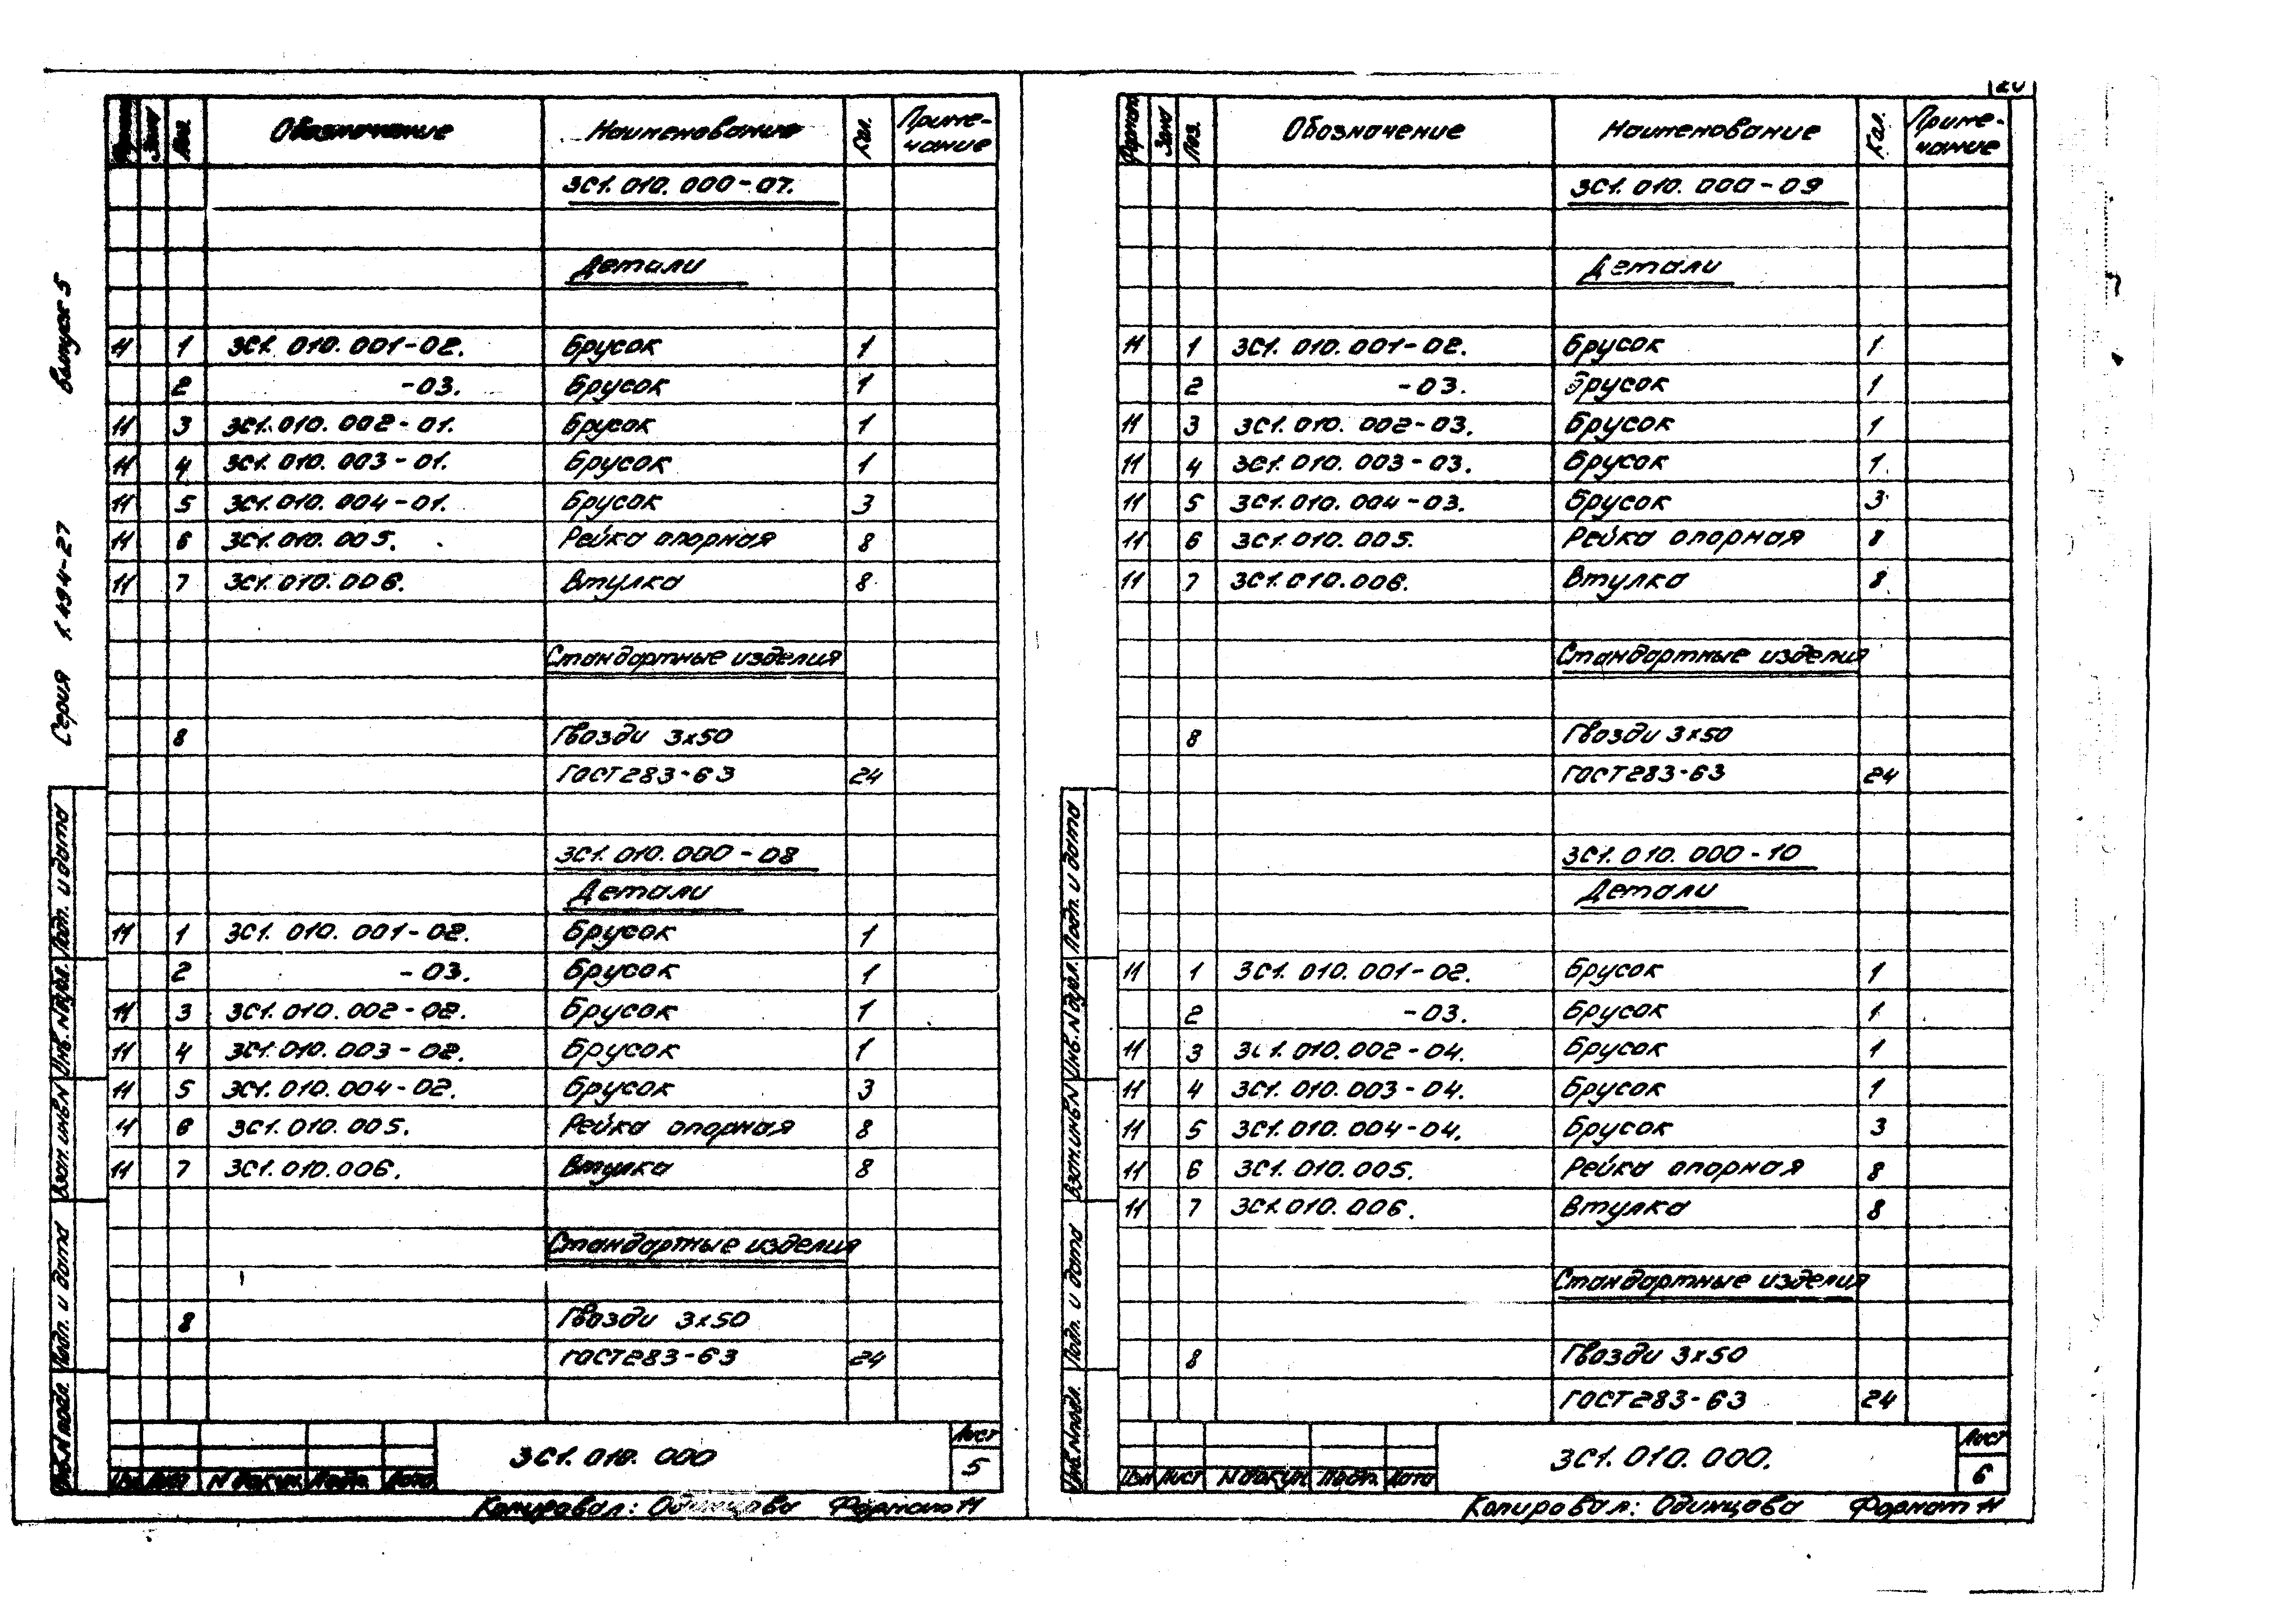 20
Серия 1.494-27 Выпуск 5
Формат Зона Поз. Обозначение Наименование Кол. Приме-
чание
3С1.010.000-07.
Детали
11 1 3С1.010.001-02. Брусок 1
2 -03. Брусок 1
11 3 3С1.010.002-01. Брусок 1
11 4 3С1.010.003-01. Брусок 1
11 5 3С1.010.004-01. Брусок 3
11 6 3С1.010.005. Рейка опорная 8
11 7 3С1.010.006. Втулка 8
Стандартные изделия
8 Гвозди 3х50
ГОСТ283-63 24
3С1.010.000-08
Детали
11 1 3С1.010.001-02. Брусок 1
2 -03. Брусок 1
11 3 3С1.010.002-02. Брусок 1
11 4 3С1.010.003-02. Брусок 1
11 5 3С1.010.004-02. Брусок 3
11 6 3С1.010.005. Рейка опорная 8
11 7 3С1.010.006. Втулка 8
Стандартные изделия
8 Гвозди 3х50
ГОСТ283-63 24
Инв.N подл. Подп. и дата Взам.инв.N Инв.N дубл. Подп. и дата
Изм Лист N докум. Подп. Дата
3С1.010.000
Лист
5
Копировал: Одинцова Формат 11
Формат Зона Поз. Обозначение Наименование Кол. Приме-
чание
3С1.010.000-09
Детали
11 1 3С1.010.001-02. Брусок 1
2 -03. Брусок 1
11 3 3С1.010.002-03. Брусок 1
11 4 3С1.010.003-03. Брусок 1
11 5 3С1.010.004-03. Брусок 3
11 6 3С1.010.005. Рейка опорная 8
11 7 3С1.010.006. Втулка 8
Стандартные изделия
8 Гвозди 3х50
ГОСТ283-63 24
3С1.010.000-10
Детали
11 1 3С1.010.001-02. Брусок 1
2 -03. Брусок 1
11 3 3С1.010.002-04. Брусок 1
11 4 3С1.010.003-04. Брусок 1
11 5 3С1.010.004-04. Брусок 3
11 6 3С1.010.005. Рейка опорная 8
11 7 3С1.010.006. Втулка 8
Стандартные изделия
8 Гвозди 3х50
ГОСТ283-63 24
Инв.N подл. Подп. и дата Взам.инв.N Инв.N дубл. Подп. и дата
Изм Лист N докум. Подп. Дата
3С1.010.000.
Лист
6
Копировал: Одинцова Формат 11